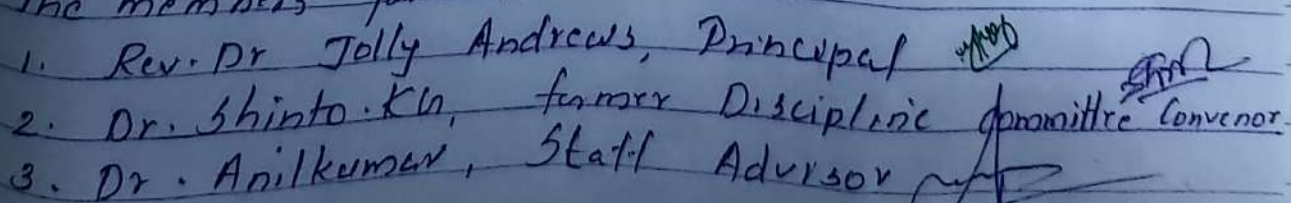 The members
1. Rev. Dr Jolly Andrews, Principal
2. Dr. Shinto. KG, former Discipline Committee Convenor
3. Dr. Anilkumar, Staff Advisor